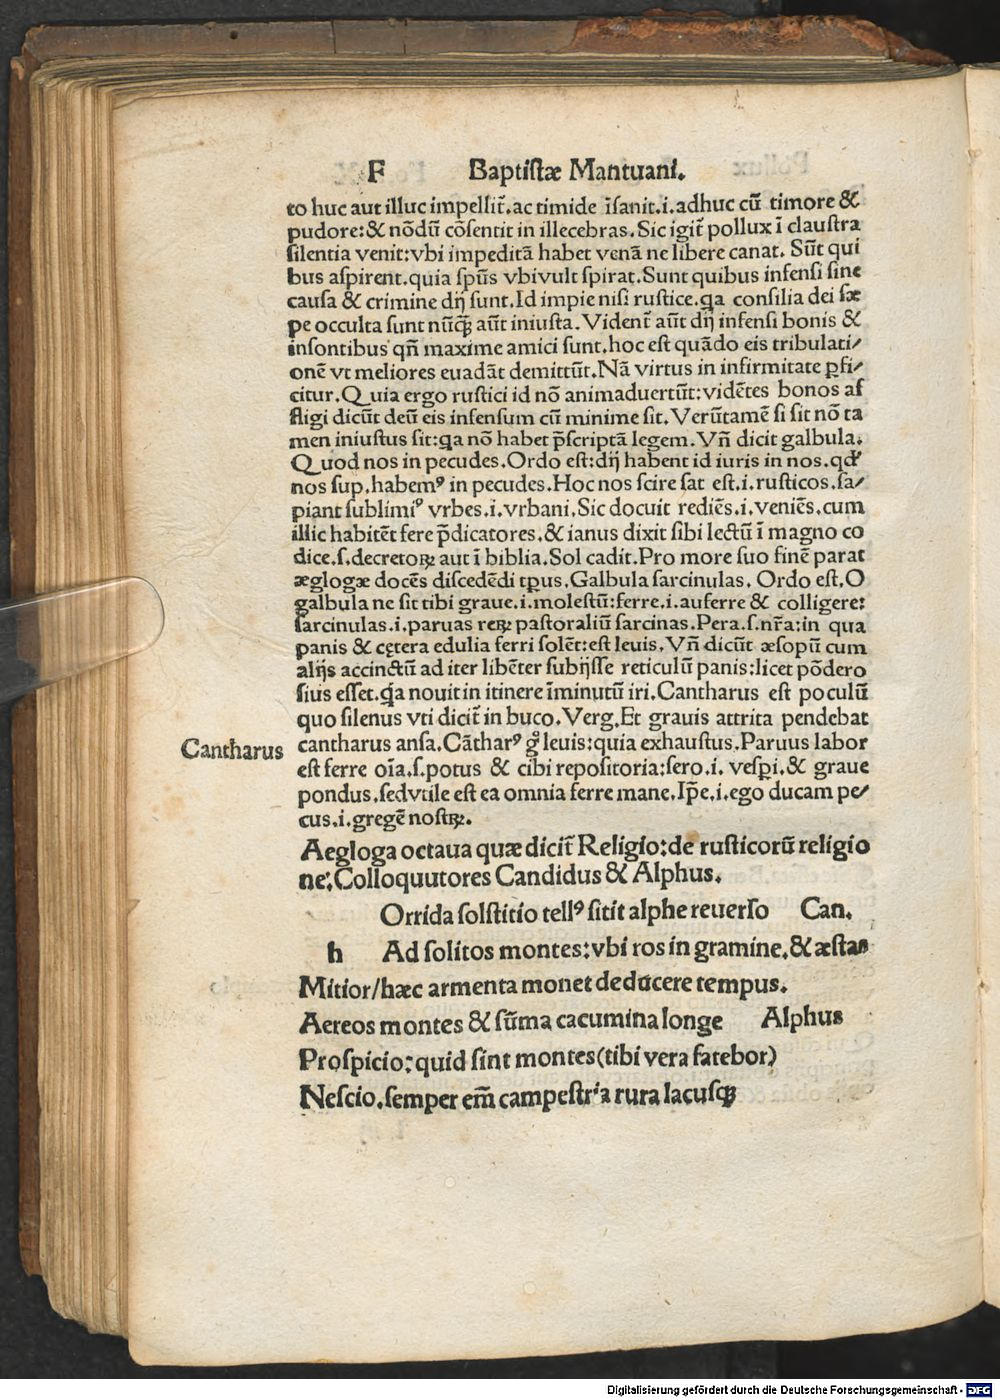 F Baptiſtæ Mantuani.
to huc aut illuc impellit᷑. ac timide iſanit.i.adhuc cū timore &
pudore:& nōdū cōſentit in illecebras. Sic igit᷑ pollux ī clauſtra
ſilentia venit:vbi impeditā habet venā ne libere canat. Sūt qui
bus aſpirent.quia ſpūs vbivult ſpirat. Sunt quibus infenſi ſine
cauſa & crimine dij ſunt. Id impie niſi ruſtice.ꝗa conſilia dei ſæ
pe occulta ſunt nūꝗ̄ aūt iniuſta. Vident᷑ aūt dij infenſi bonis &
inſontibus qn̄ maxime amici ſunt.hoc eſt quādo eis tribulati/
onē vt meliores euadāt demittūt. Nā virtus in infirmitate ꝑfi/
citur. Quia ergo ruſtici id nō animaduertūt:vidētes bonos af
fligi dicūt deū eis infenſum cū minime ſit. Verūtamē ſi ſit nō ta
men iniuſtus ſit:ꝗa nō habet p̄ſcriptā legem. Vn̄ dicit galbula.
Quod nos in pecudes. Ordo eſt:dij habent id iuris in nos.qd'
nos ſup.habemꝰ in pecudes. Hoc nos ſcire ſat eſt.i.ruſticos.ſa/
piant ſublimiꝰ vrbes.i.vrbani. Sic docuit rediēs.i.veniēs.cum
illic habitēt fere p̄dicatores.& ianus dixit ſibi lectū ī magno co
dice.ſ.decretoꝝ aut ī biblia. Sol cadit. Pro more ſuo finē parat
æglogæ docēs diſcedēdi tꝑus. Galbula ſarcinulas. Ordo eſt. O
galbula ne ſit tibi graue.i.moleſtū:ferre.i.auferre & colligere:
ſarcinulas.i.paruas reꝝ paſtoraliū ſarcinas. Pera.ſ.nr̄a:in qua
panis & cętera edulia ferri ſolēt:eſt leuis. Vn̄ dicūt æſopū cum
alijs accinctū ad iter libēter ſubijſſe reticulū panis:licet pōdero
ſius eſſet.ꝗa nouit in itinere īminutū iri. Cantharus eſt poculū
quo ſilenus vti dicit᷑ in buco. Verg. Et grauis attrita pendebat
Cantharus
cantharus anſa. Cātharꝰ gͦ leuis:quia exhauſtus. Paruus labor
eſt ferre oīa.ſ.potus & cibi repoſitoria:ſero.i. veſꝑi.& graue
pondus.ſedvtile eſt ea omnia ferre mane. Ip̄e.i.ego ducam pe/
cus.i.gregē noſtꝝ.
Aegloga octaua quæ dicit᷑ Religio:de ruſticorū religio
ne: Colloquutores Candidus & Alphus.
Orrida ſolſtitio tellꝰ ſitit alphe reuerſo Can.
h Ad ſolitos montes:vbi ros in gramine.& æſtas
Mitior/hæc armenta monet deducere tempus.
Aereos montes & ſūma cacumina longe Alphus
Proſpicio:quid ſint montes(tibi vera fatebor)
Neſcio.ſemper em̄ campeſtria rura lacuſꝗꝫ
Digitalisierung gefördert durch die Deutsche Forschungsgemeinschaft - DFG